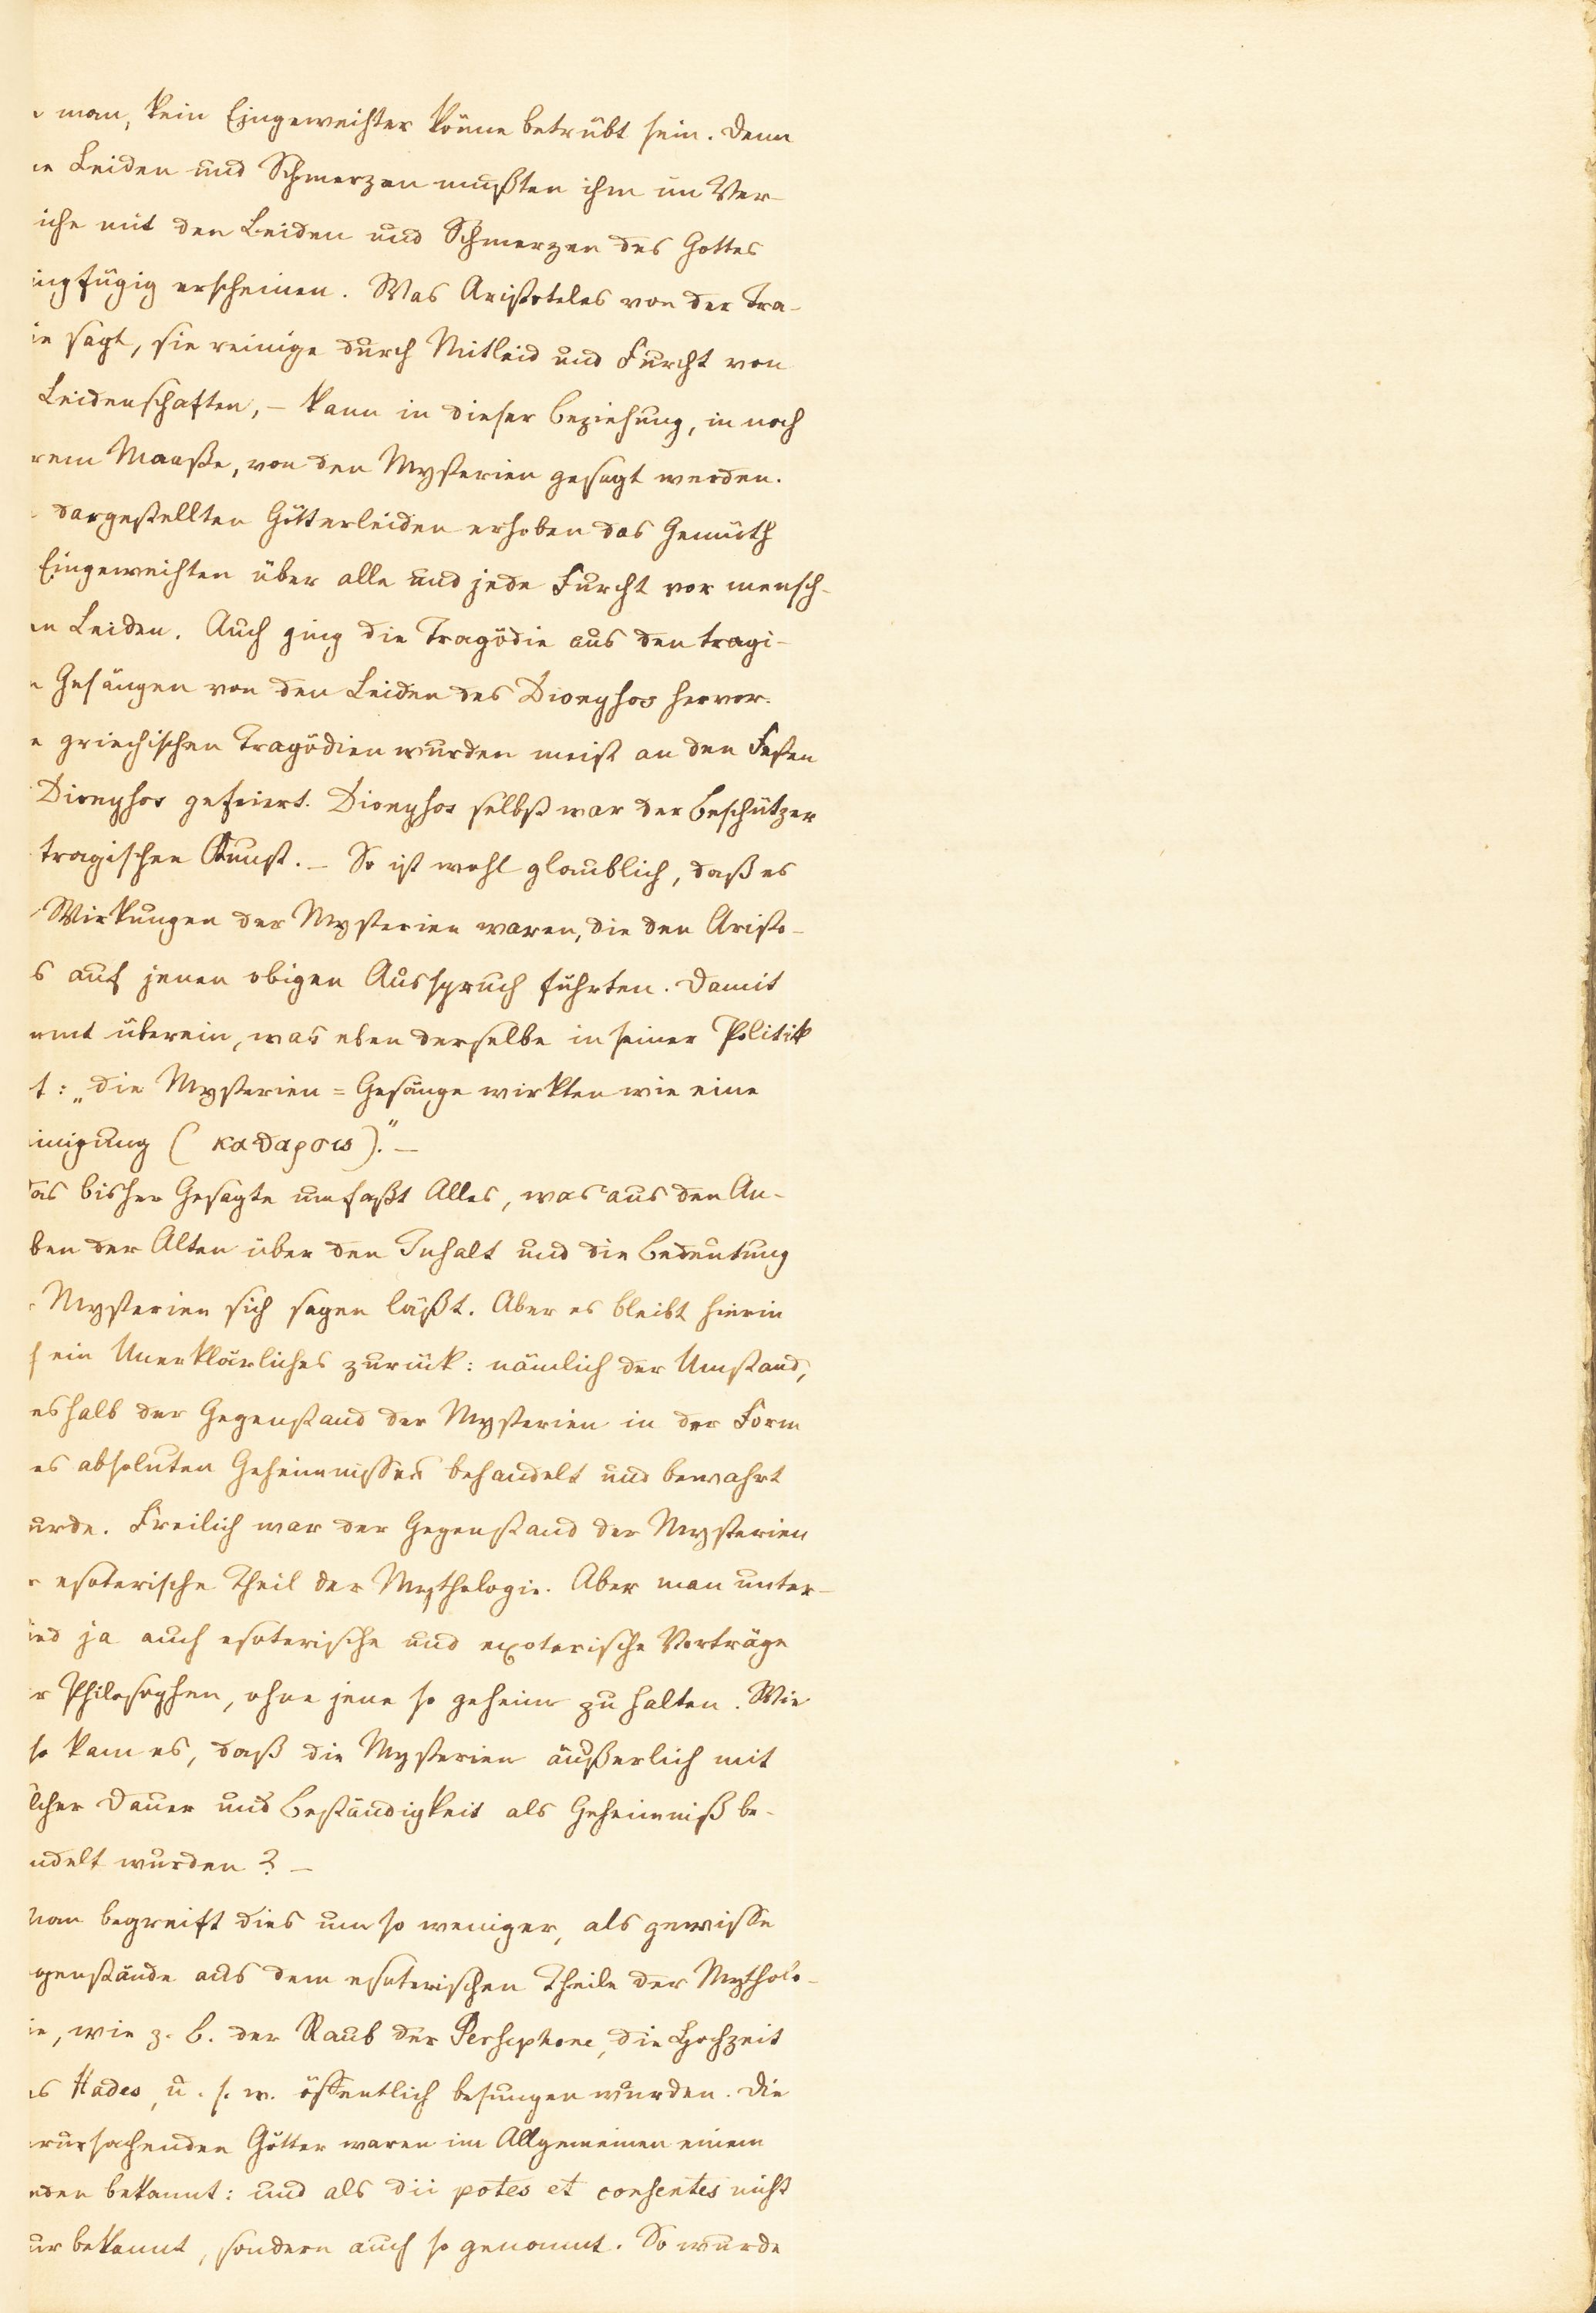 man, kein Eingeweihter könne betrübt sein. Denn
ie Leiden und Schmerzen mußten ihm im Ver-
iche mit den Leiden und Schmerzen des Gottes
ingfügig erscheinen. Was Aristoteles von der Tra-
ie sagt, sie reinige durch Mitleid und Furcht von
Leidenschaften, – kann in dieser Beziehung, in noch
rem Maaße, von den Mysterien gesagt werden.
dargestellten Götterleiden erhoben das Gemüth
Eingeweihten über alle und jede Furcht vor mensch-
en Leiden. Auch ging die Tragödie aus den tragi-
n Gesängen von den Leiden des Dionysos hervor.
e griechischen Tragödien wurden meist an den Festen
Dionysos gefeiert. Dionysos selbst war der Beschützer
tragischen Kunst. – So ist wohl glaublich, daß es
Wirkungen der Mysterien waren, die den Aristo-
s auf jenen obigen Ausspruch führten. Damit
mmt überein, was eben derselbe in seiner Politik
t: „die Mysterien = Gesänge wirkten wie eine
inigung (καθαρσις).“ –
das bisher Gesagte umfaßt Alles, was aus den An-
ben der Alten über den Inhalt und die Bedeutung
r Mysterien sich sagen läßt. Aber es bleibt hierin
h ein Unerklärliches zurück: nämlich der Umstand,
eshalb der Gegenstand der Mysterien in der Form
es absoluten Geheimnisses behandelt und bewahrt
urde. Freilich war der Gegenstand der Mysterien
r esoterische Theil der Mythologie. Aber man unter-
ied ja auch esoterische und exoterische Vorträge
r Philosophen, ohne jene so geheim zu halten. Wie
so kam es, daß die Mysterien äußerlich mit
lcher Dauer und Beständigkeit als Geheimniß be-
ndelt wurden? –
Man begreift dies um so weniger, als gewisse
genstände aus dem esoterischen Theile der Mytholo-
ie, wie z. B. der Raub der Persephone, die Hochzeit
es Hades, u. s. w. öffentlich besungen wurden. Die
rursachenden Götter waren im Allgemeinen einem
eden bekannt: und als dii potes et consentes nicht
ur bekannt, sondern auch so genannt. So wurde